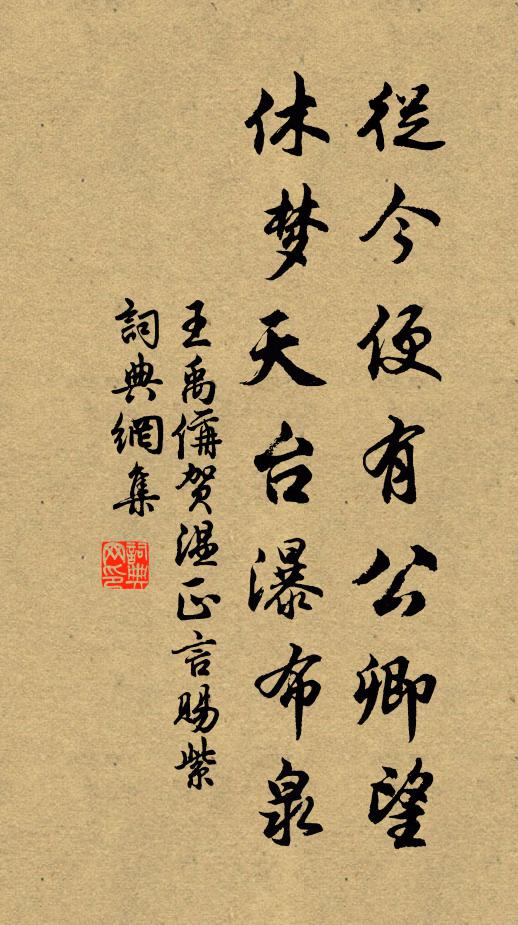 從今便有公卿望
休梦天台瀑布泉
王禹偁贺温正言賜紫
詞典網集
詞典網印